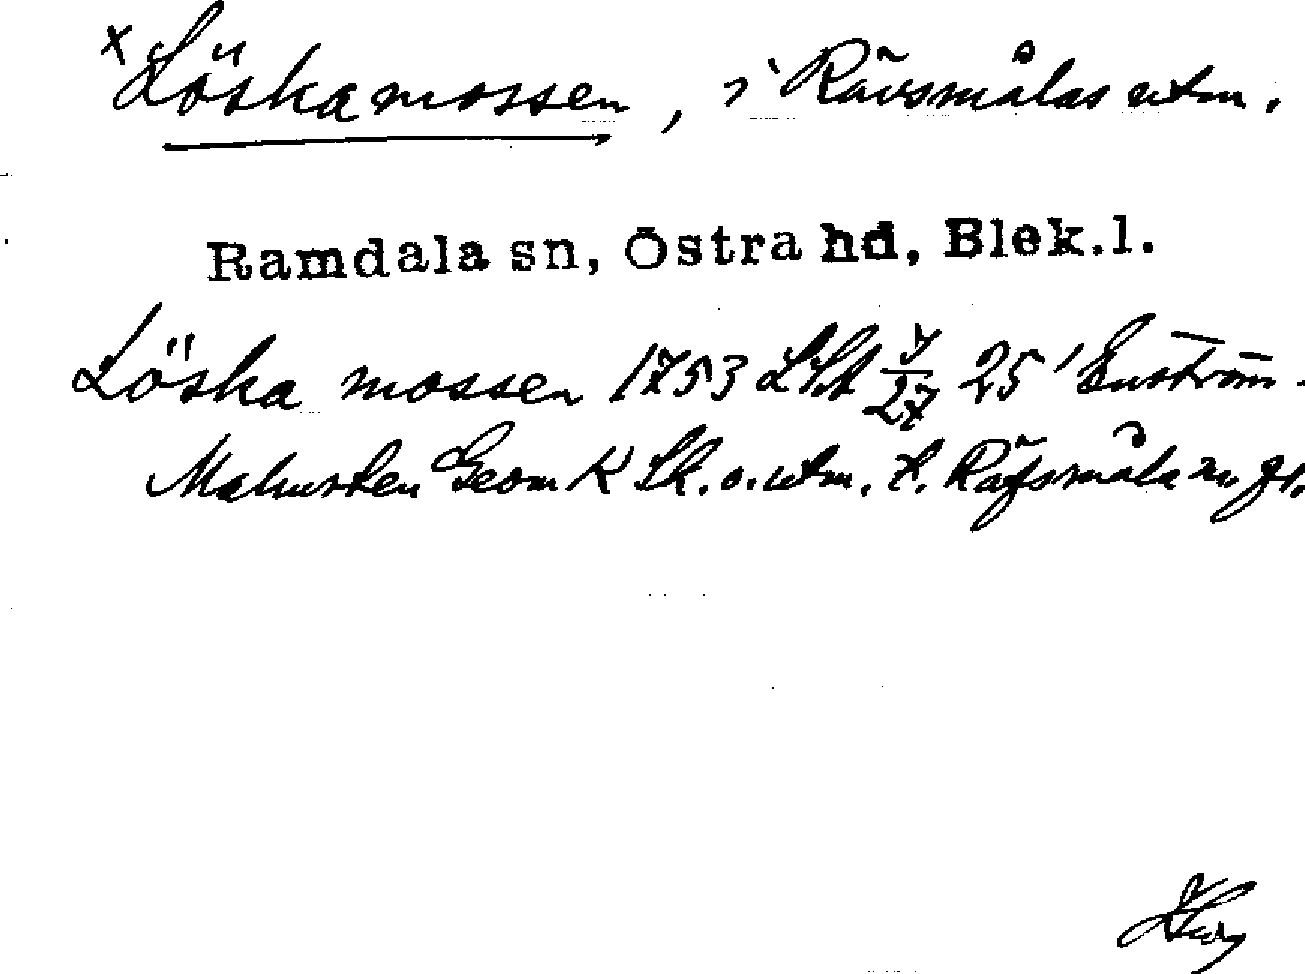 x Löskamossen, i Rävsmålas utm.
Ramdala sn, Östra hd, Blek.l.
Löska mossen 1753 LSA 25 Enström-
Malmsten Geom K Sk. o. utm. t. Räfsmåla